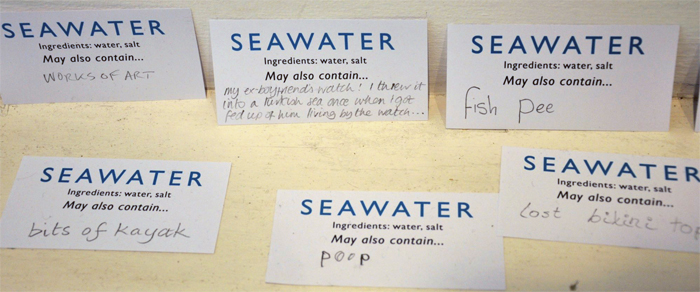 SEAWATER
Ingredients: water, salt
May also contain...
WORKS OF ART
SEAWATER
Ingredients: water, salt
May also contain...
my ex-boyfriend's watch! I threw it
into a Turkish sea once when I got
fed up of him living by the watch...
SEAWATER
Ingredients: water, salt
May also contain...
fish pee
SEAWATER
Ingredients: water, salt
May also contain...
bits of kayak
SEAWATER
Ingredients: water, salt
May also contain...
poop
SEAWATER
Ingredients: water, salt
May also contain...
lost bikini top